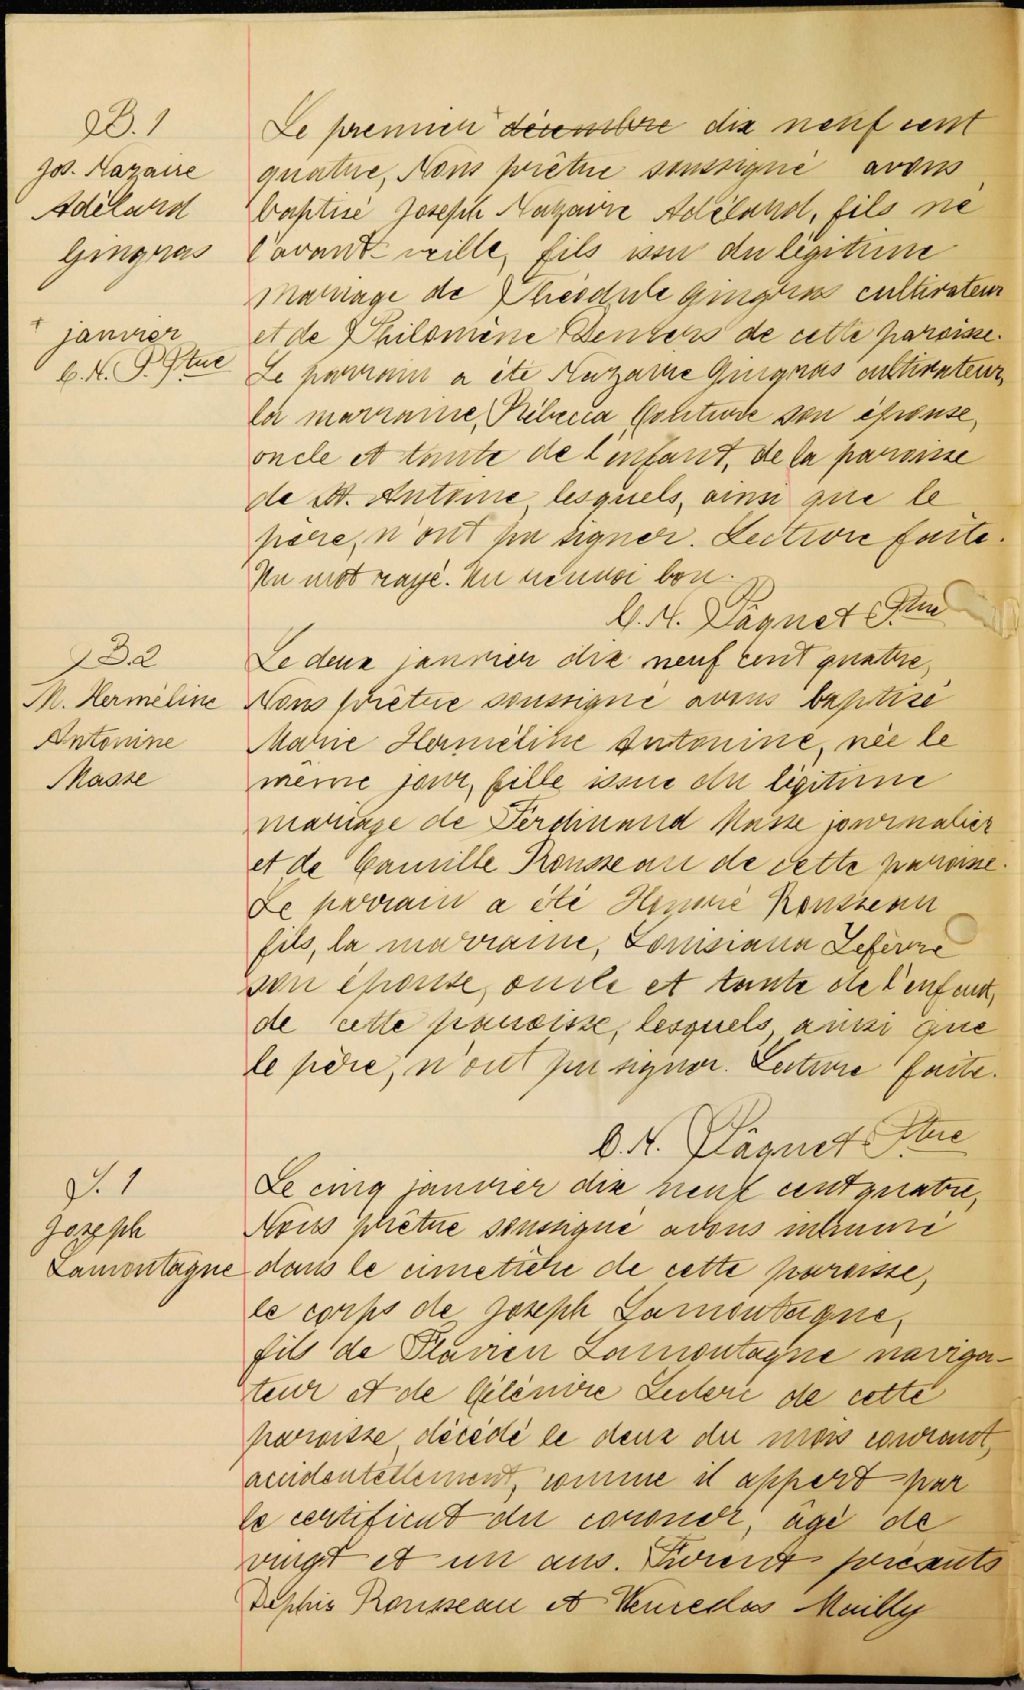 B. 1
Jos. Nazaire
Adélard
Gingras
+ janvier
C. N. P. Ptre
Le premier + décembre dix neuf cent
quatre, Nous prêtre soussigné avons
baptisé Joseph Nazaire Adélard, fils né
l'avant-veille, fils issu du légitime
mariage de Théodule Gingras cultivateur
et de Philomène Demers de cette paroisse.
Le parrain a été Nazaire Gingras cultivateur,
la marraine, Rébecca Couture son épouse,
oncle et tante de l'enfant, de la paroisse
de St. Antoine, lesquels, ainsi que le
père, n'ont pu signer. Lecture faite.
Un mot rayé. Un renvoi bon.
C. N. Pâquet Ptre
B. 2
M. Herméline
Antonine
Masse
Le deux janvier dix neuf cent quatre,
Nous prêtre soussigné avons baptisé
Marie Herméline Antonine, née le
même jour, fille issue du légitime
mariage de Ferdinand Masse journalier
et de Camille Rousseau de cette paroisse.
Le parrain a été Honoré Rousseau
fils, la marraine, Louisiana Lefèvre
son épouse, oncle et tante de l'enfant,
de cette paroisse, lesquels, ainsi que
le père, n'ont pu signer. Lecture faite.
C. N. Pâquet Ptre
S. 1
Joseph
Lamontagne
Le cinq janvier dix neuf cent quatre,
Nous prêtre soussigné avons inhumé
dans le cimetière de cette paroisse,
le corps de Joseph Lamontagne,
fils de Flavien Lamontagne naviga-
teur et de Célénire Leclerc de cette
paroisse, décédé le deux du mois courant,
accidentellement, comme il appert par
le certificat du coroner, âgé de
vingt et un ans. Furent présents
Delphis Rousseau et Wenceslas Mailly